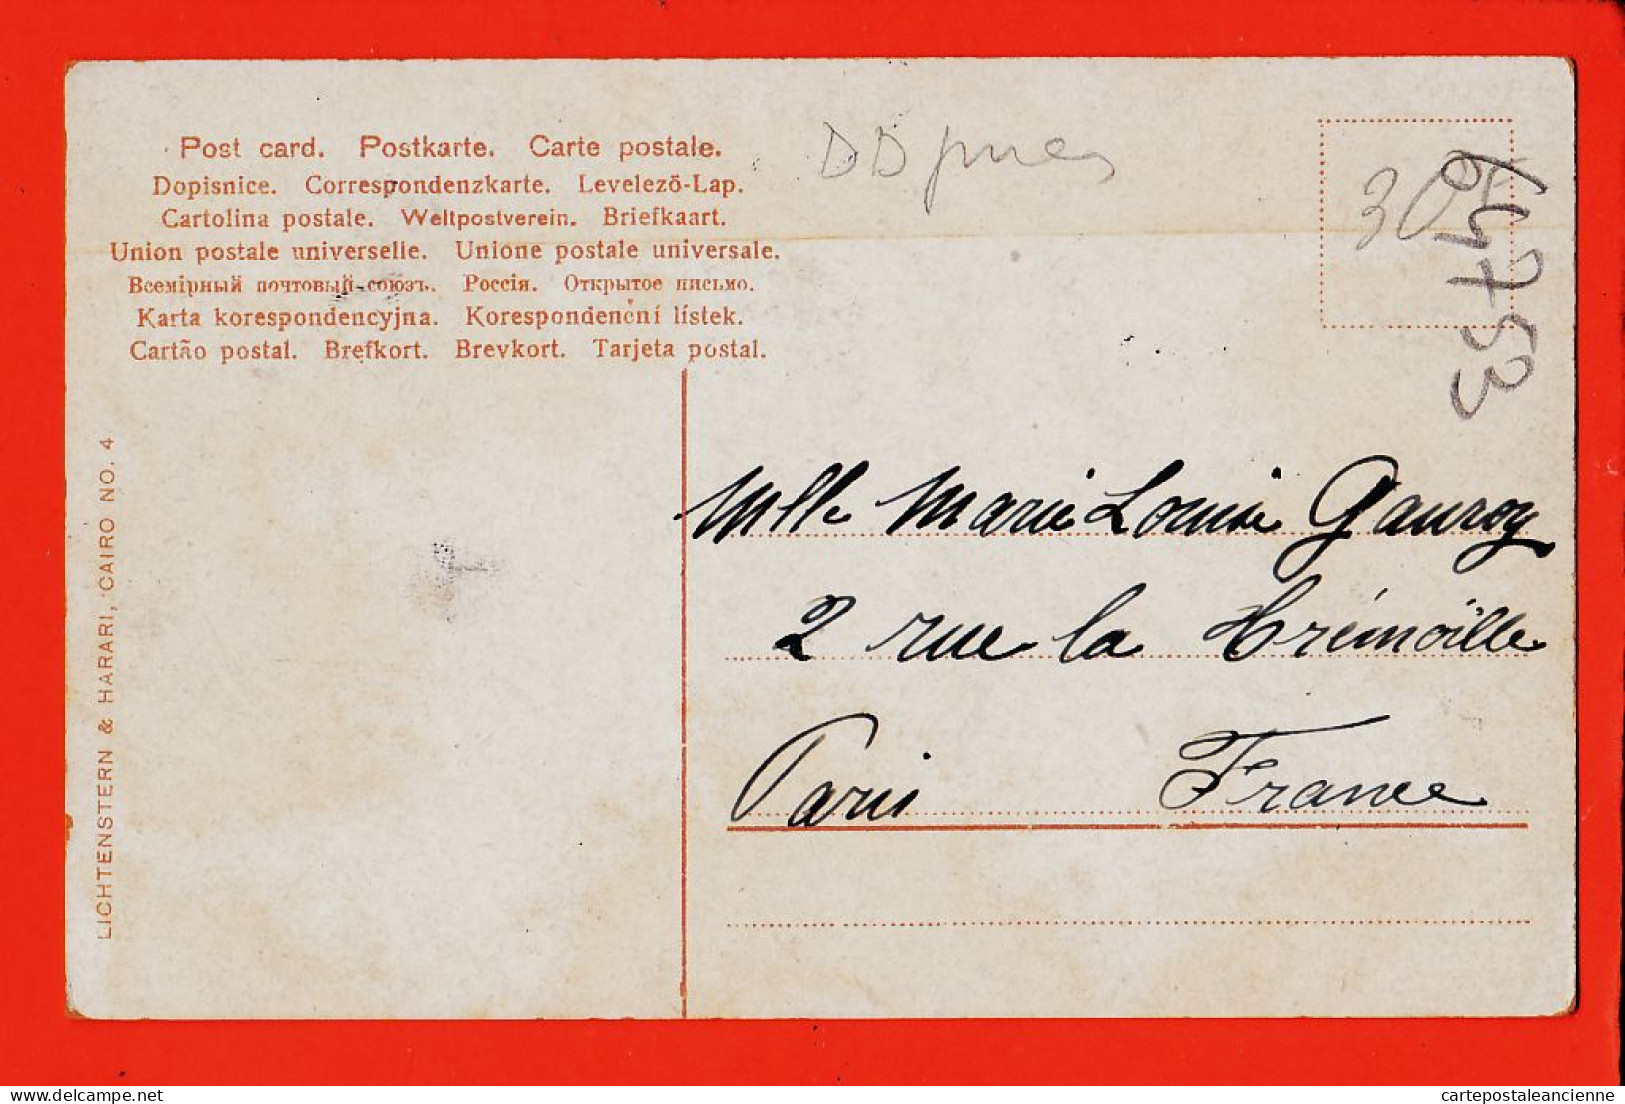 Post card. Postkarte. Carte postale.
Dopisnice. Correspondenzkarte. Levelező-Lap.
Cartolina postale. Weltpostverein. Briefkaart.
Union postale universelle. Unione postale universale.
Всемірный почтовый союзъ. Россія. Открытое письмо.
Karta korespondencyjna. Korespondenční lístek.
Cartão postal. Brefkort. Brevkort. Tarjeta postal.
LICHTENSTERN & HARARI, CAIRO NO. 4
DD
30
Mlle Marie Louise Gauroy
2 rue la Trémoïlle
Paris France
delcampe.net
cartepostaleancienne